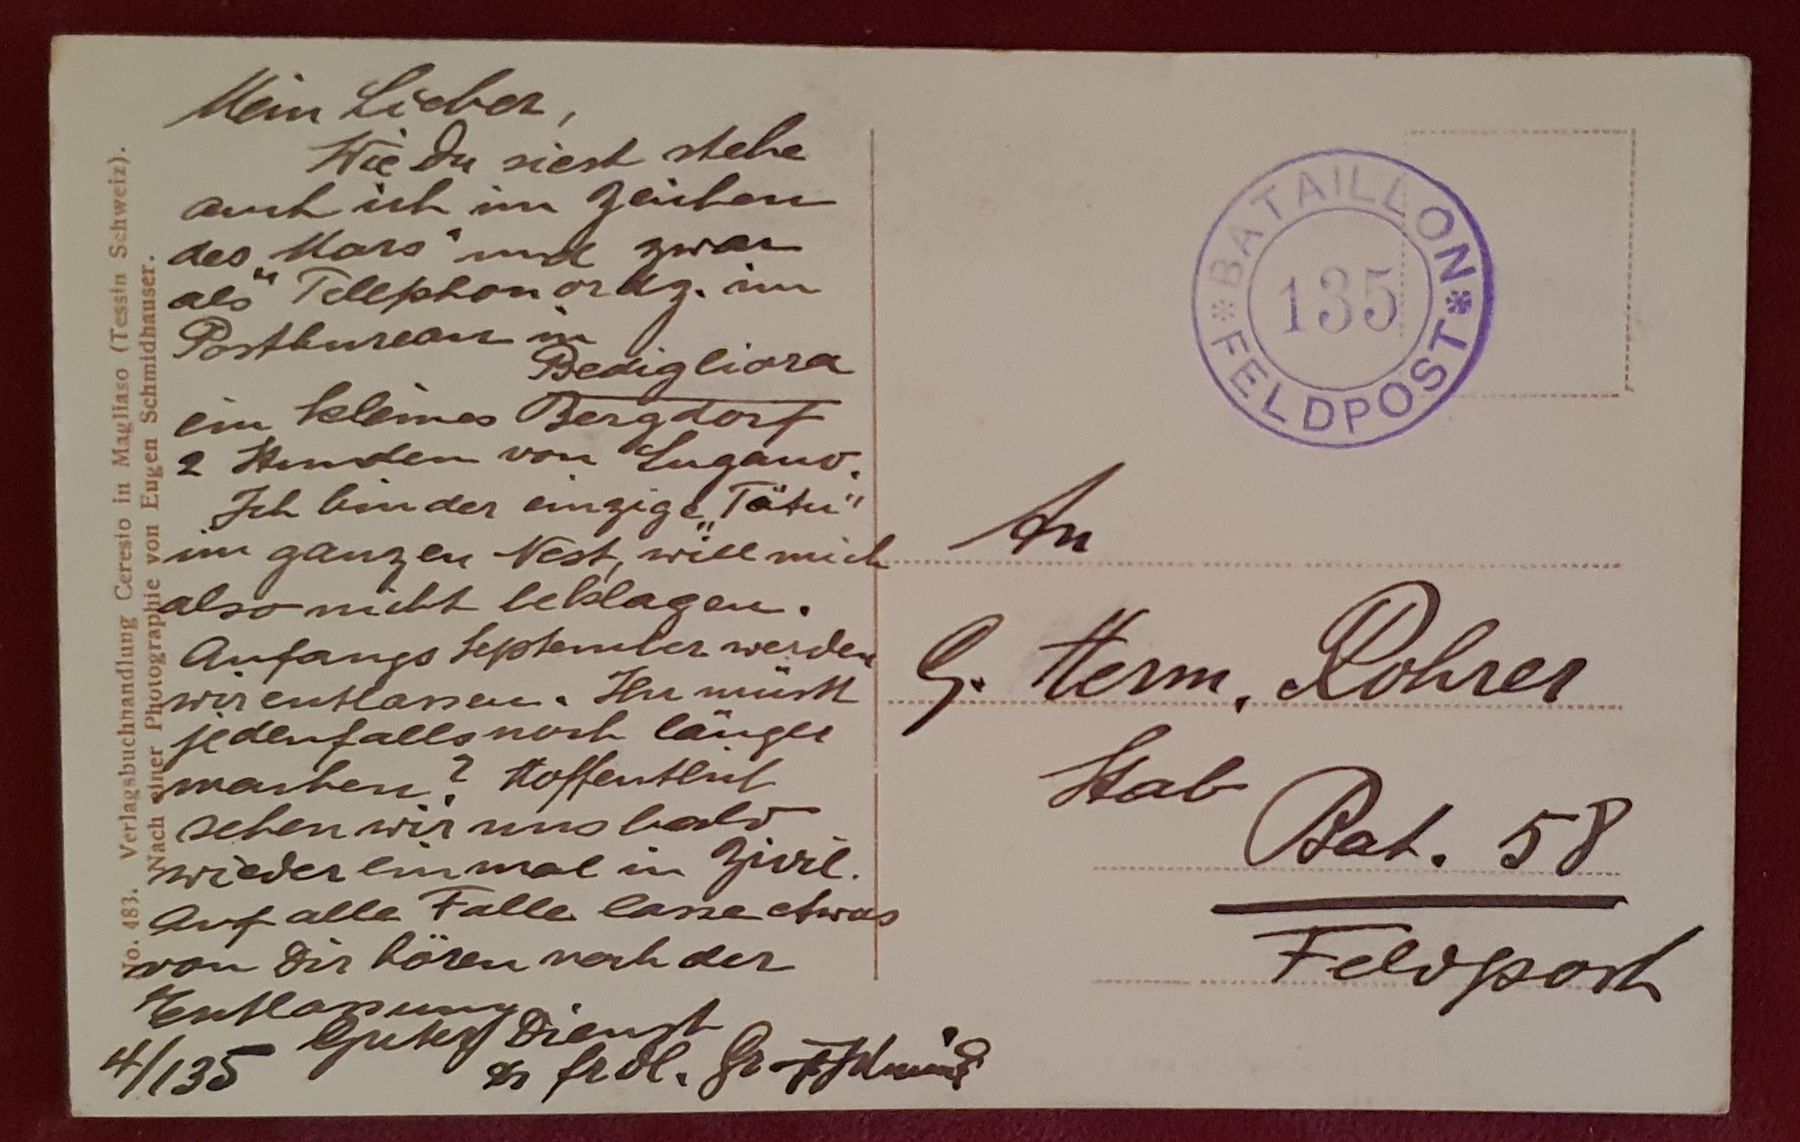 Mein Lieber,
Wie Du siest stehe
auch ich im Zeichen
des Mars" und zwar
als "Telephonordz. im
Postbureau in
Bedigliora
ein kleines Bergdorf
2 Stunden von Lugano.
Ich bin der einzige "Tätu"
im ganzen Nest, will mich
also nicht beklagen.
Anfangs September werden
wir entlassen. Ihr müsst
jedenfalls noch länger
machen? Hoffentlich
sehen wir uns bald
wieder einmal in Zivil.
Auf alle Fälle lasse etwas
von Dir hören nach der
Entlassung
Guten Dienst
4/135 & frdl. Gr
No. 483. Verlagsbuchhandlung Ceresio in Magliaso (Tessin Schweiz).
Nach einer Photographie von Eugen Schmidhauser.
* BATAILLON *
135
FELDPOST
An
G. Herm. Rohrer
Stab
Bat. 58
Feldpost